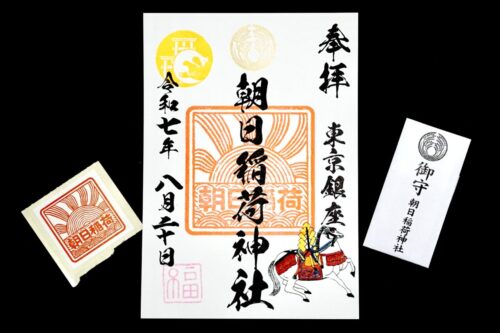 奉拝
東京銀座
朝日稲荷神社
朝日稲荷
令和七年 八月二十日
福
朝日稲荷
御守
朝日稲荷神社